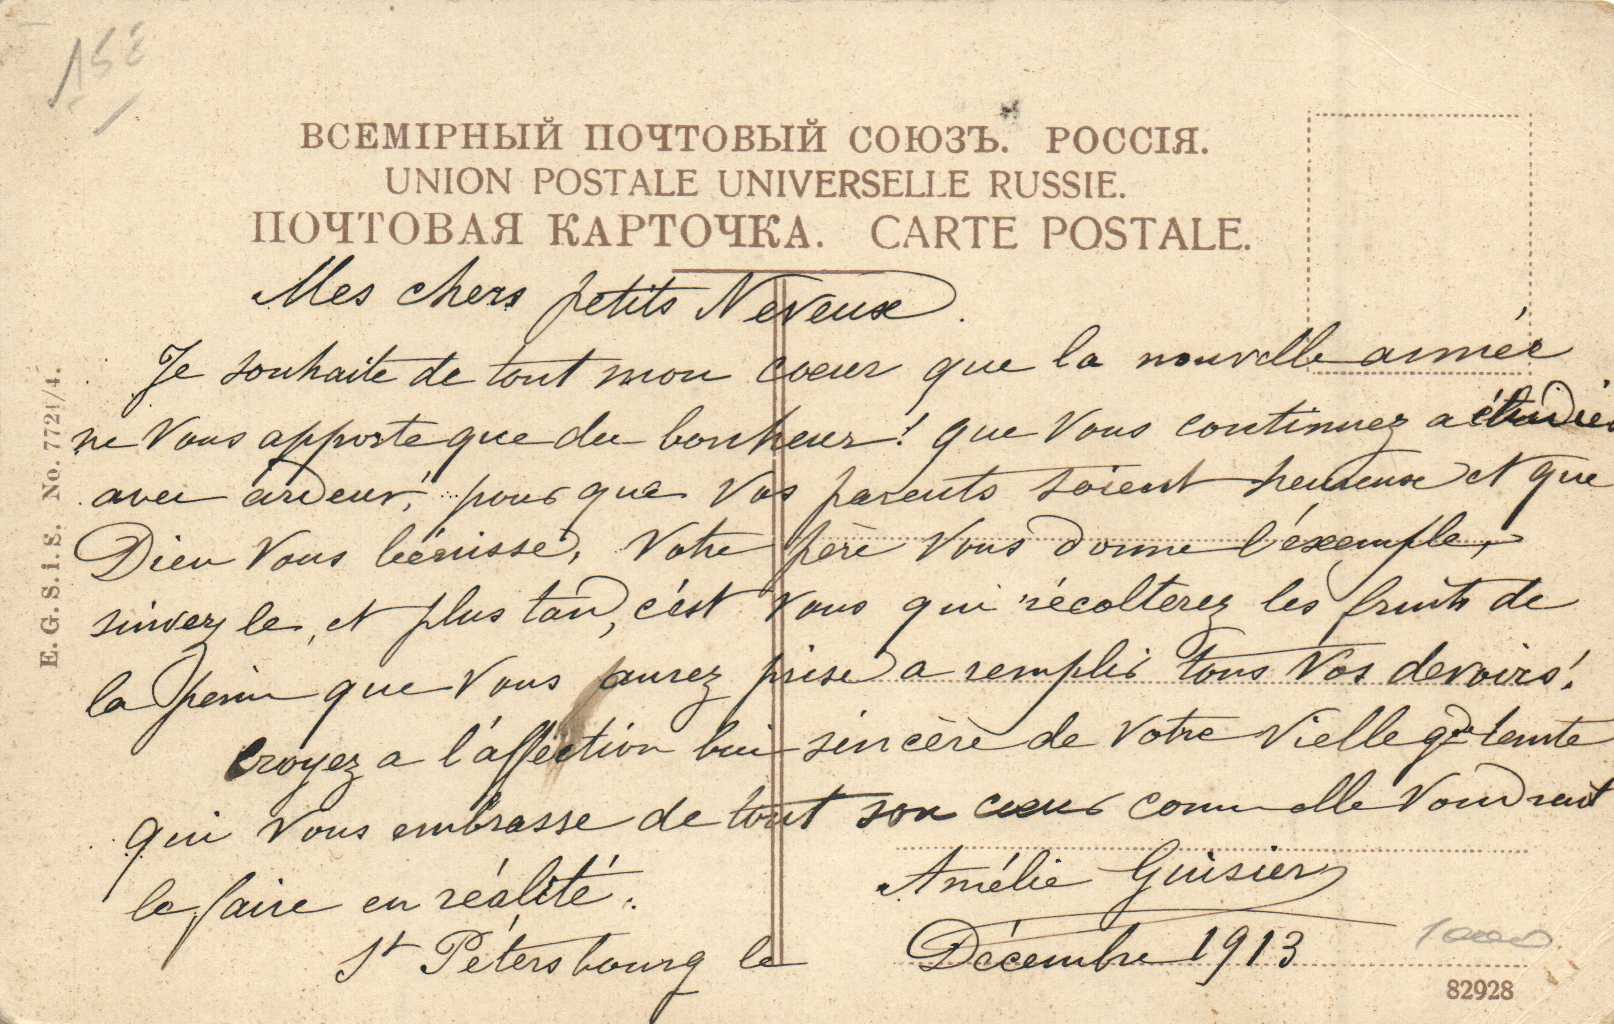 15
ВСЕМІРНЫЙ ПОЧТОВЫЙ СОЮЗЪ. РОССІЯ.
UNION POSTALE UNIVERSELLE RUSSIE.
ПОЧТОВАЯ КАРТОЧКА. CARTE POSTALE.
Mes chers petits Neveux.
Je souhaite de tout mon coeur que la nouvelle année
ne Vous apporte que du bonheur! que Vous continuez a étudier
avec ardeur, pour que Vos parents soient heureux et que
Dieu Vous bénisse, Votre père Vous donne l'éxemple,
suivez le, et plus tard, c'est Vous qui récolterez les fruits de
la peine que Vous aurez prise a remplir tous Vos devoirs!
croyez a l'affection bien sincère de Votre Vielle gde tante
qui Vous embrasse de tout son coeur comme elle Voudrait
le faire en réalité.
Amélie
St Pétersbourg le Décembre 1913
E. G. S. i. S. No. 7721/4.
82928